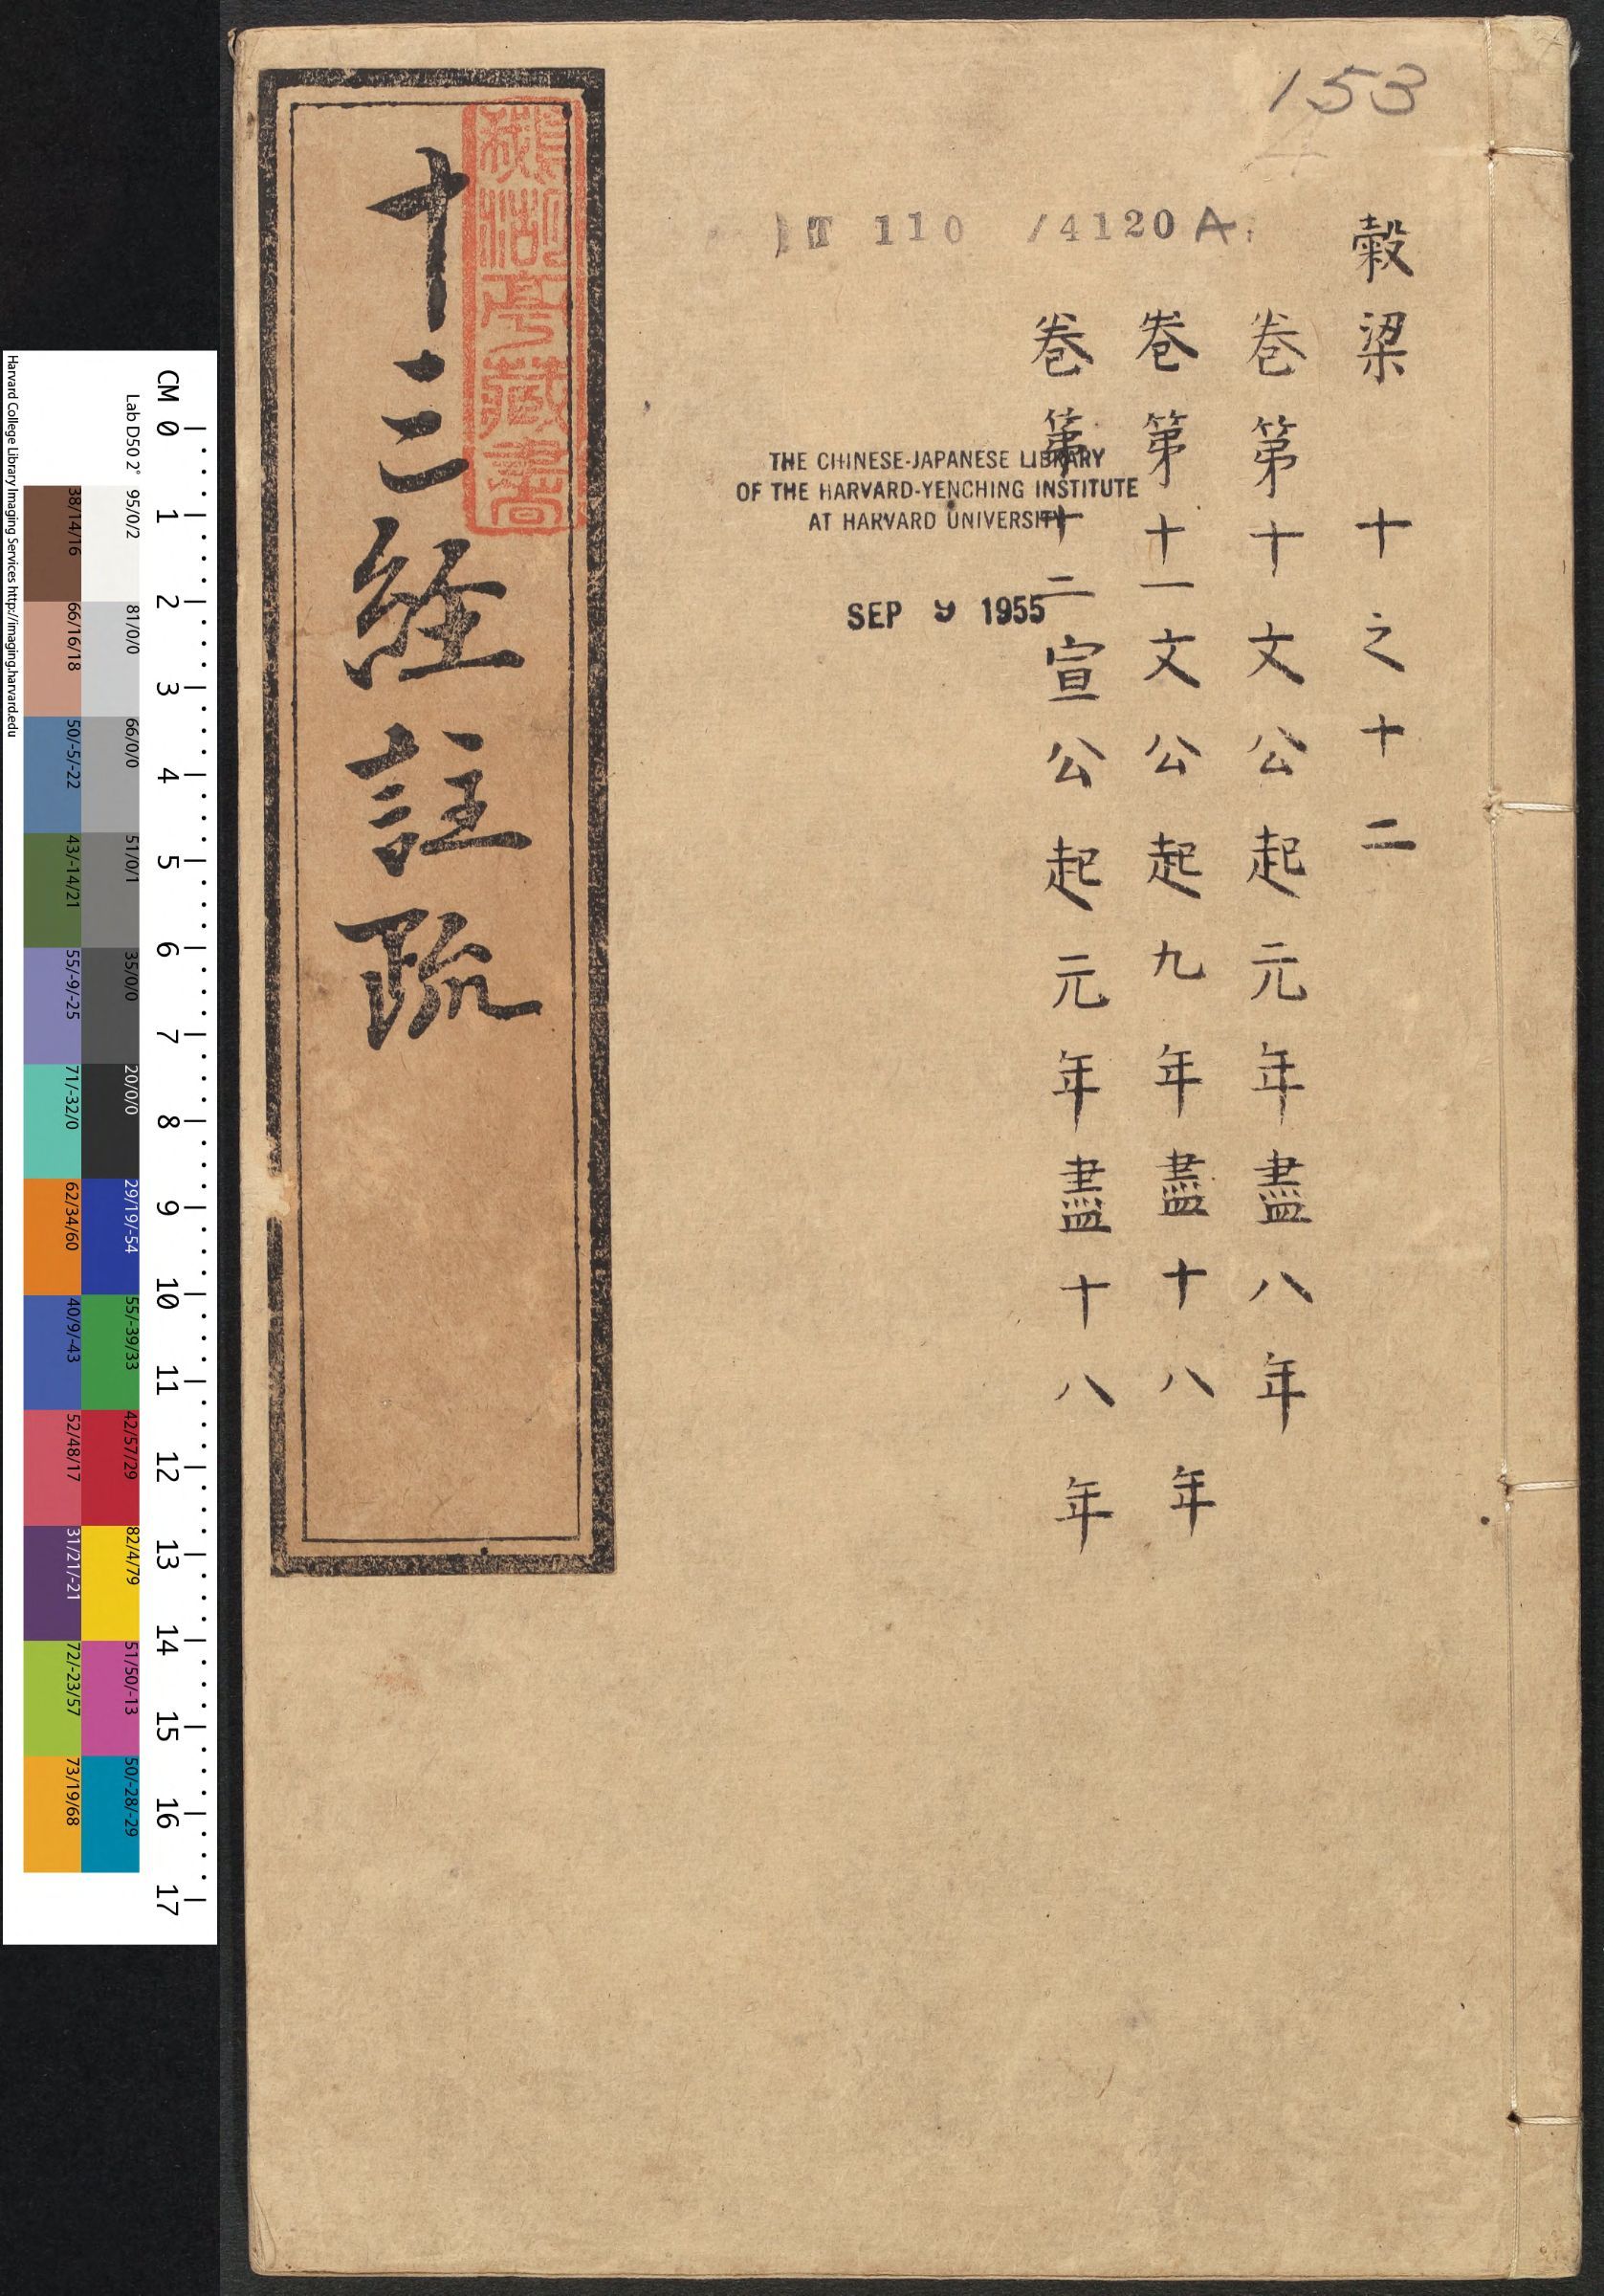 153
T 110 /4120 A
穀梁 十之十二
卷第十文公起元年盡八年
卷第十一文公起九年盡十八年
卷第十二宣公起元年盡十八年
THE CHINESE-JAPANESE LIBRARY
OF THE HARVARD-YENCHING INSTITUTE
AT HARVARD UNIVERSITY
SEP 9 1955
十三経註疏
亭藏書
CM 0 1 2 3 4 5 6 7 8 9 10 11 12 13 14 15 16 17
Lab D50 2° 95/0/2 81/0/0 66/0/0 51/0/1 35/0/0 20/0/0 29/19/-54 55/-39/33 42/57/29 82/4/79 51/50/-13 50/-28/-29
38/14/16 66/16/18 50/-5/-22 43/-14/21 55/-9/-25 71/-32/0 62/34/60 40/9/-43 52/48/17 31/21/-21 72/-23/57 73/19/68
Harvard College Library Imaging Services http://imaging.harvard.edu